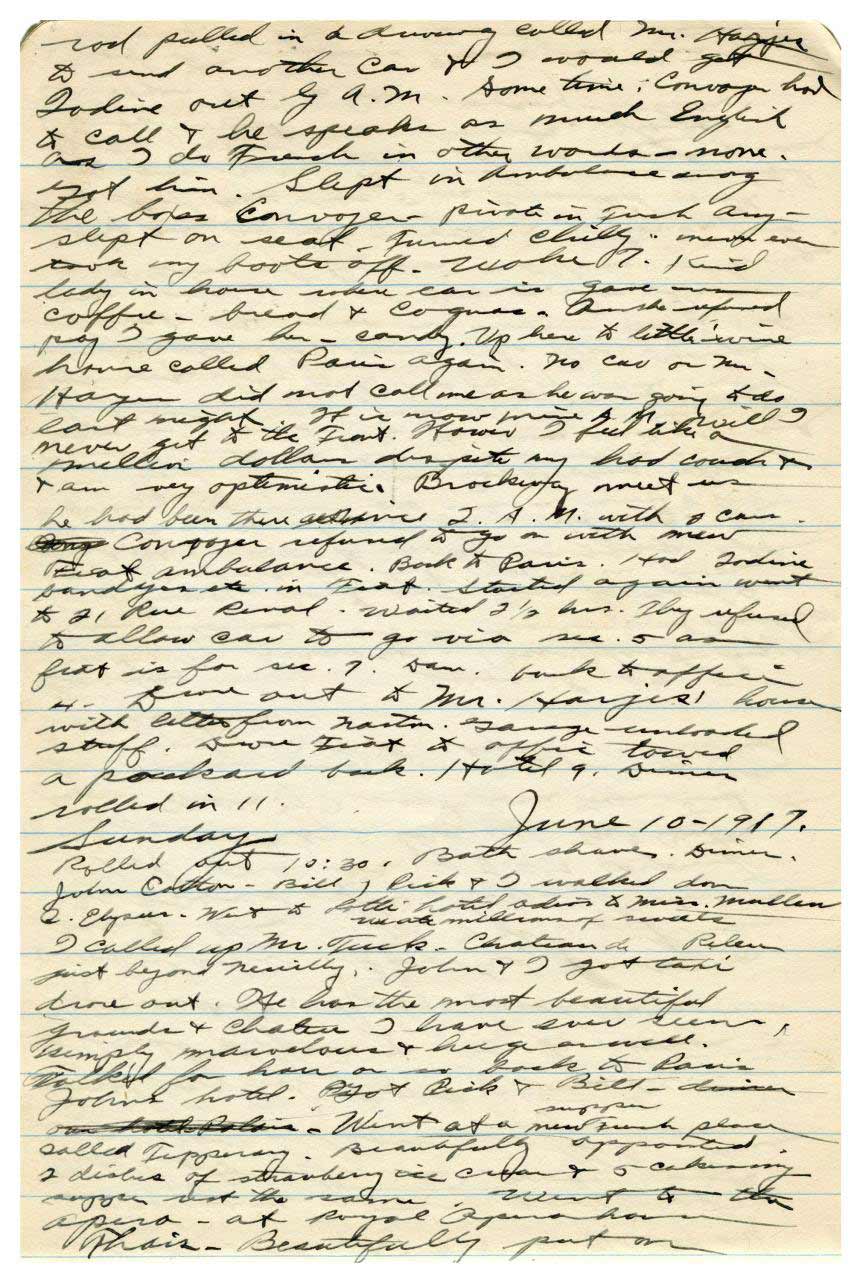 rod pulled in a driveway called Mr. Harjes
to send another car & I would get
Iodine out by A.M. Some time; Convoyer had
to call & he speaks as much English
as I do French in other words - none.
got him. Slept in Ambulance among
the boxes Convoyer - private in French Army -
slept on seat. Turned chilly: never even
took my boots off. Woke 7. Kind
lady in house where car is gave us
coffee - bread & Cognac. As she refused
pay I gave her - candy. Up here to little wine
house called Paris again. No car or Mr.
Harjes did not call me as he was going to do
last night. It is now nine A.M. Will I
never get to the Front. However I feel like a
million dollars despite my hard couch &
& am very optimistic. Brockway meet us
he had been there since 2. A.M. with a car.
Convoyer refused to go on with new
Fiat ambulance. Back to Paris. Had Iodine
bandages etc. in Fiat. Started again went
to 21 Rue Renal. Waited 2 1/2 hrs. They refused
to allow car to go via sec. 5 as
fiat is for sec. 7. Dam. back to office
4. Drove out to Mr. Harjes' house
with letter from Garage unloaded
stuff. Drove Fiat to office towed
a packard back. Hotel 9. Dinner
rolled in 11.
Sunday June 10-1917.
Rolled out 10:30. Bath shave. Dinner.
John Cotton - Bill, Dick & I walked down
C. Elysees. Went to little hotel adios to Miss. Mullen
we ate millions of sweets
I called up Mr. Tuck. Chateau de
just beyond Neuilly. John & I got taxi
drove out. He has the most beautiful
grounds & Chateau I have ever seen,
simply marvelous & huge as well.
Talked for hour or so back to Paris
Johns hotel. Got Dick & Bill - dinner
supper
Went at a new rush place
called Tipperary. Beautifully appointed.
2 dishes of strawberry ice cream & 5 cakes my
supper not the same. Went to the
opera - at Royal Opera house
Thais - Beautifully put on